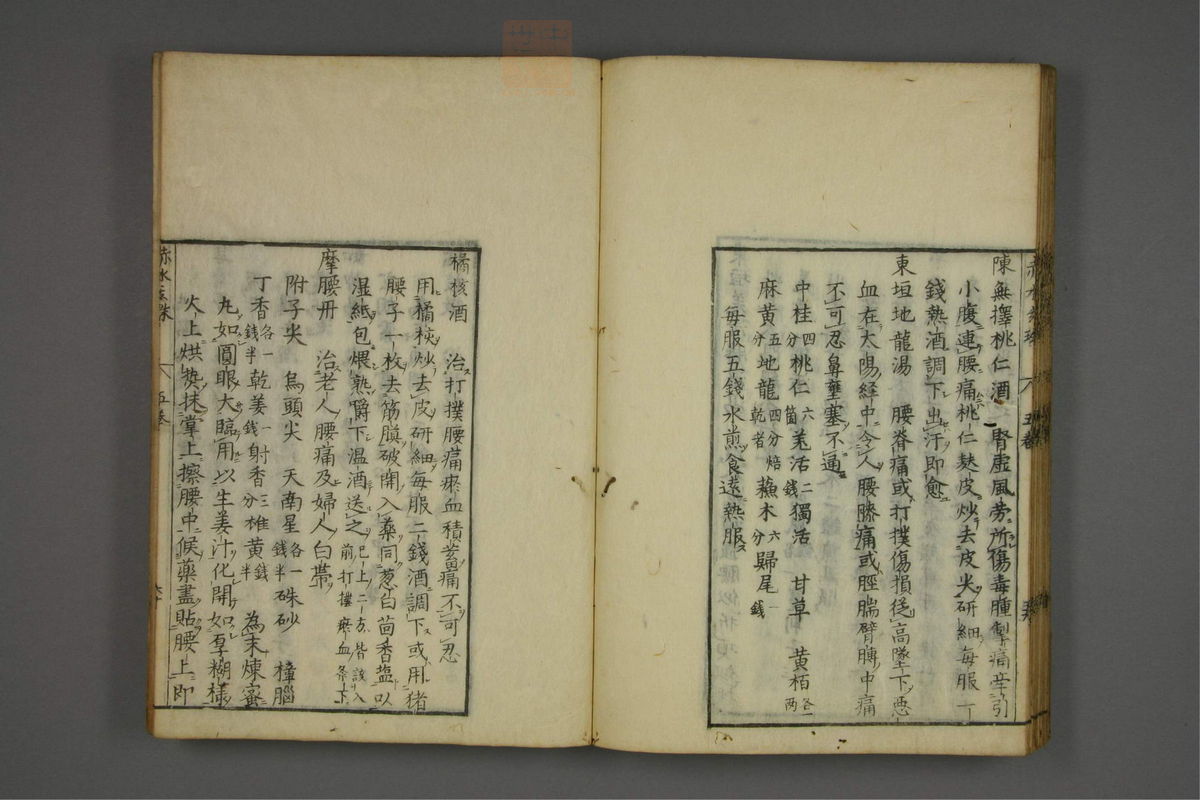 陳無擇桃仁酒　腎虚風労所傷毒腫掣痛牽引
小腹連腰痛桃仁麸皮炒去皮尖研細每服一
錢熱酒調下出汗即愈
東垣地龍湯　腰脊痛或打撲傷損従高墜下悪
血在太陽経中令人腰脊痛或脛腨臂膊中痛
不可忍鼻壅塞不通
中桂四分桃仁六箇羌活二錢獨活　甘草　黄栢各一両
麻黄五分地龍四分焙乾者蘓木六分歸尾一錢
每服五錢水煎食遠熱服
橘核酒　治打撲腰痛瘀血積蓄痛不可忍
用橘核炒去皮研細每服二錢酒調下或用猪
腰子一枚去筋膜破開入藥同葱白茴香塩以
湿紙包煨熟嚼下温酒送之已上二方皆該入前打撲瘀血条下
摩腰丹　治老人腰痛及婦人白帶
附子尖　烏頭尖　天南星各一錢半硃砂　樟腦
丁香各一錢半乾姜一錢射香三分雄黄錢半　為末煉蜜
丸如圓眼大臨用以生姜汁化開如厚糊樣
火上烘熱抹掌上擦腰中候藥盡貼腰上即
赤水玄珠　五卷